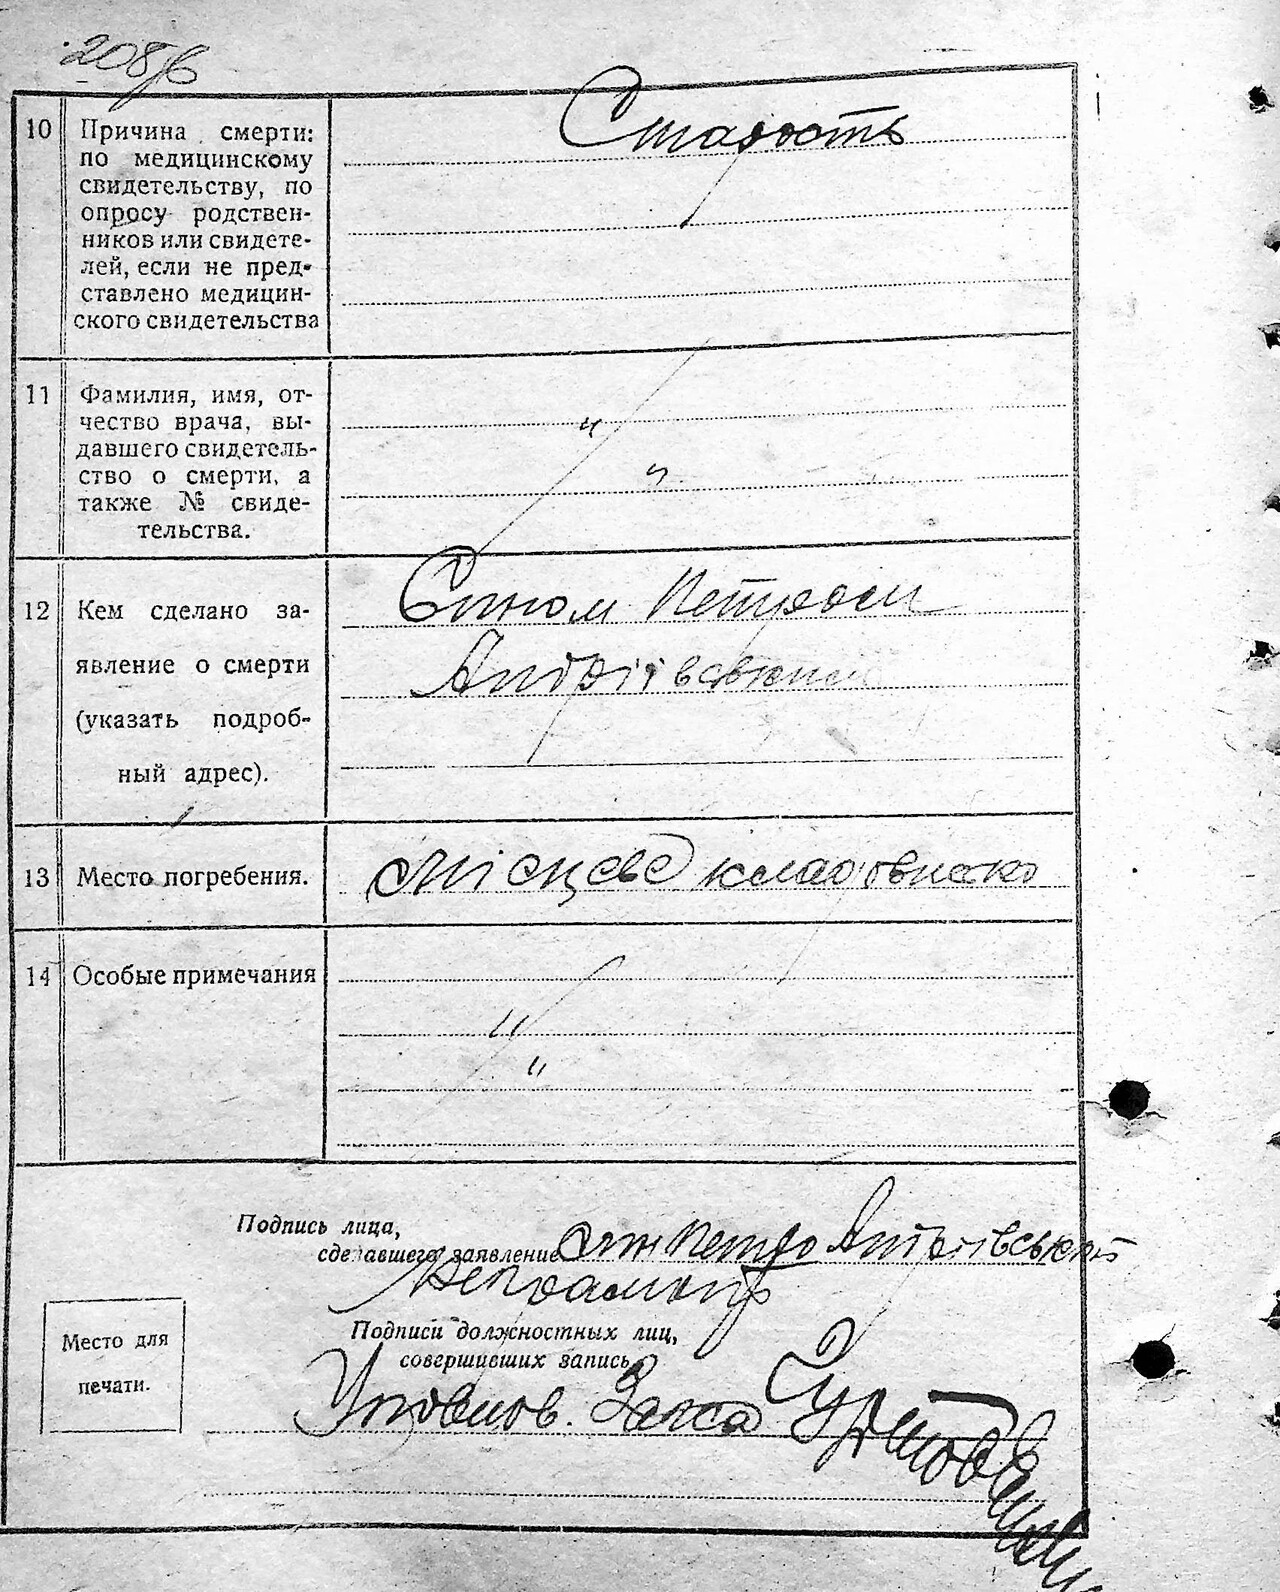 208
10
Причина смерти:
по медицинскому
свидетельству, по
опросу родствен-
ников или свидете-
лей, если не пред-
ставлено медицин-
ского свидетельства
Старость
11
Фамилия, имя, от-
чество врача, вы-
давшего свидетель-
ство о смерти, а
также № свиде-
тельства.
"
"
12
Кем сделано за-
явление о смерти
(указать подроб-
ный адрес).
Сином Петром
Андріївським
13
Место погребения.
Місцеве кладовиско
14
Особые примечания
"
"
Подпись лица,
сделавшего заявление
син Петро Андріївський
Подписи должностных лиц,
совершивших запись
Место для
печати.
Уповнов. Загса